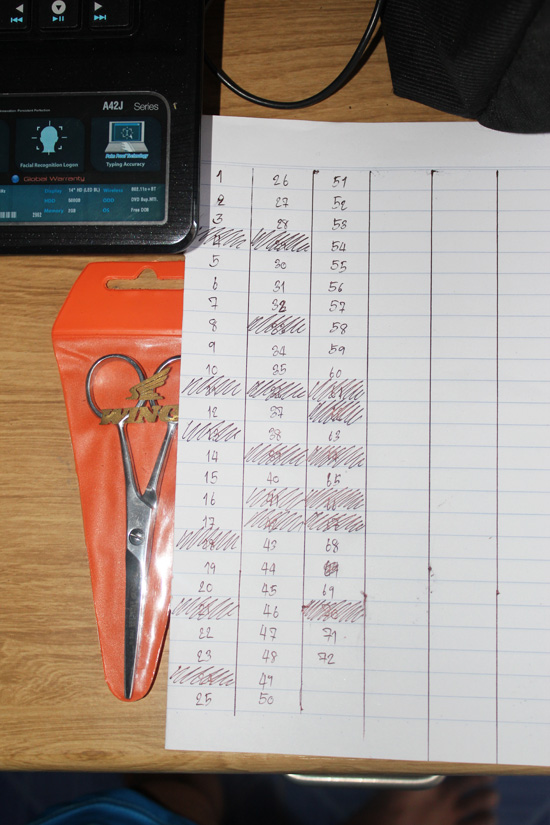 A42J Series
Facial Recognition Logon
Typing Accuracy
Global Warranty
Display 14" HD (LED BL) Wireless 802.11n+BT
ODD DVD Sup.Mtl.
Memory OS Free DOS
1 26 51
2 27 52
3 28 53
54
5 30 55
6 31 56
7 32 57
8 58
9 34 59
10 35 60
12 37
38 63
14
15 40 65
16
17
43 68
19 44
20 45 69
46
22 47 71
23 48 72
49
25 50